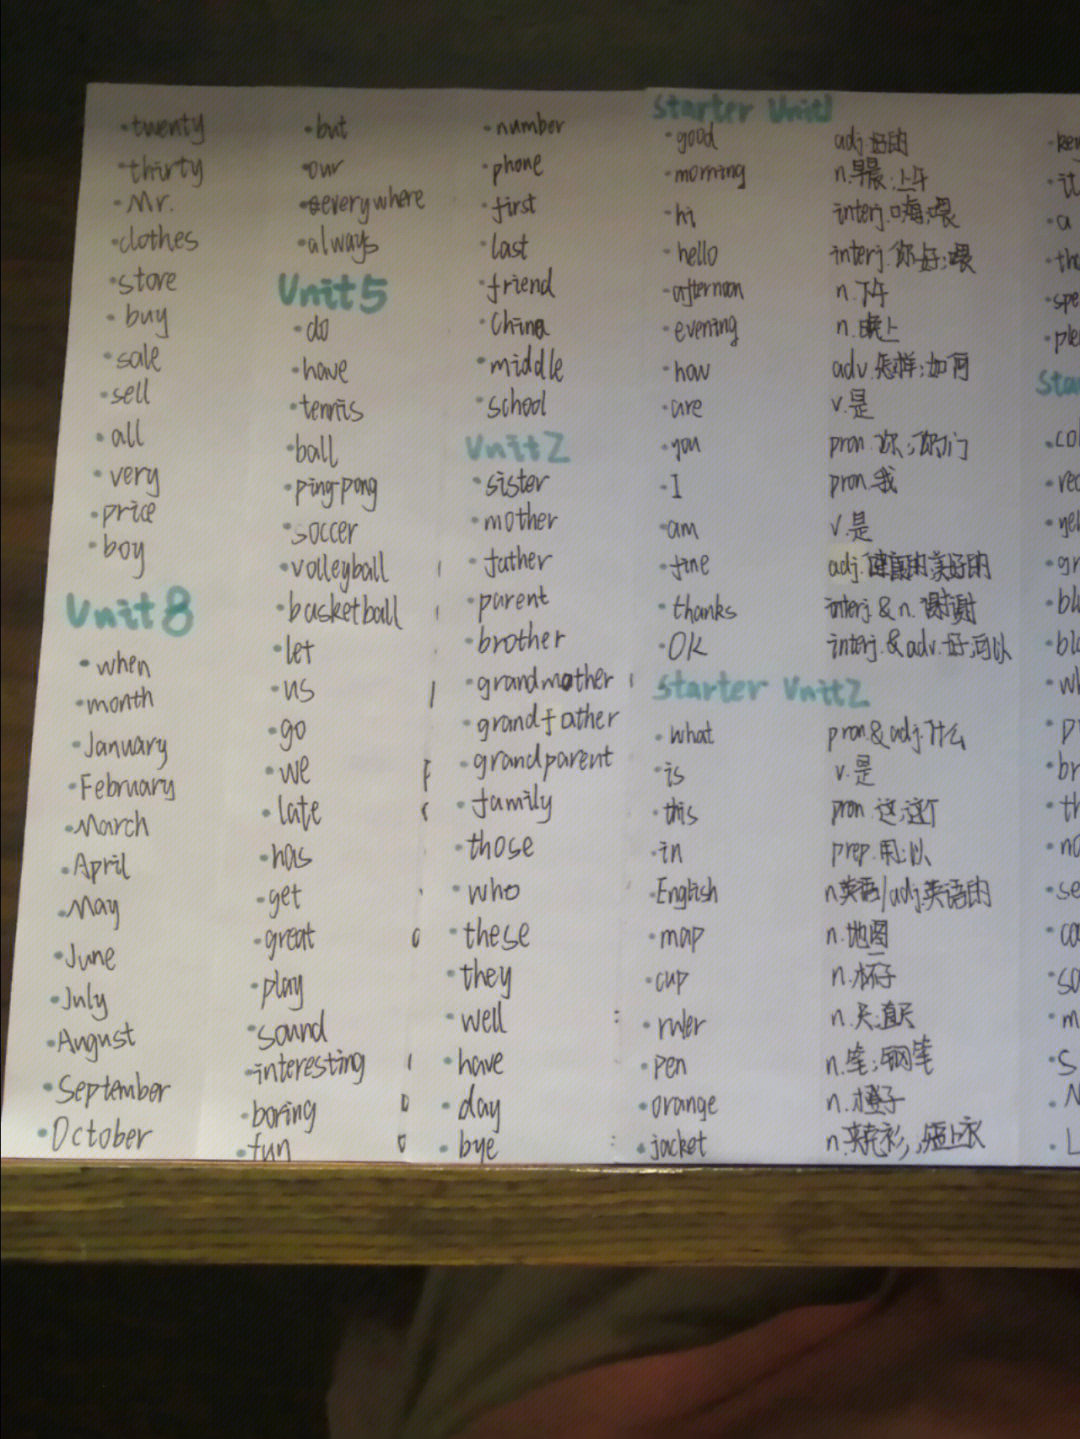 twenty
thirty
Mr.
clothes
store
buy
sale
sell
all
very
price
boy
Unit8
when
month
January
February
March
April
May
June
July
August
September
October
but
our
everywhere
always
Unit5
do
have
tennis
ball
ping-pong
soccer
volleyball
basketball
let
us
go
we
late
has
get
great
play
sound
interesting
boring
fun
number
phone
first
last
friend
China
middle
school
Unit2
sister
mother
father
parent
brother
grandmother
grandfather
grandparent
family
those
who
these
they
well
have
day
bye
Starter Unit1
good adj.好的
morning n.早晨;上午
hi interj.嗨;喂
hello interj.你好;喂
afternoon n.下午
evening n.晚上
how adv.怎样;如何
are v.是
you pron.你;你们
I pron.我
am v.是
fine adj.健康的;美好的
thanks interj.&n.谢谢
OK interj.&adv.好;可以
Starter Unit2
what pron&adj.什么
is v.是
this pron.这;这个
in prep.用;以
English n.英语/adj.英语的
map n.地图
cup n.杯子
ruler n.尺;直尺
pen n.笔;钢笔
orange n.橙子
jacket n.夹克衫;短上衣
it
a